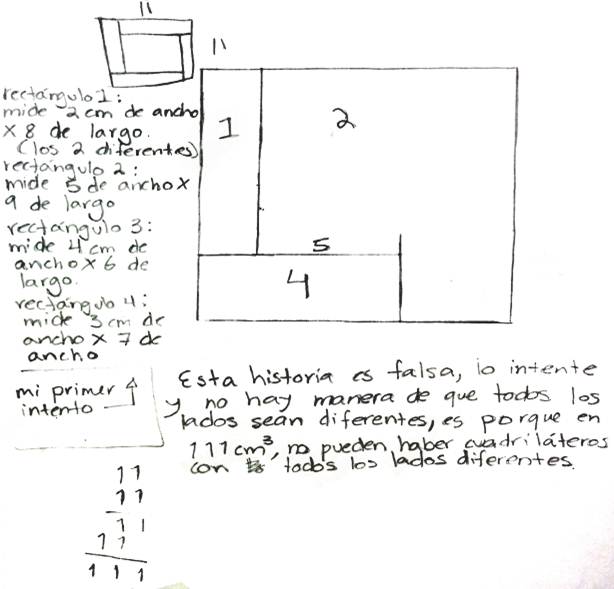 11
11
rectángulo 1:
mide 2 cm de ancho
x 8 de largo.
(los 2 diferentes)
rectángulo 2:
mide 5 de ancho x
9 de largo
rectángulo 3:
mide 4 cm de
ancho x 6 de
largo.
rectángulo 4:
mide 3 cm de
ancho x 7 de
ancho
1
2
5
4
mi primer
intento
Esta historia es falsa, lo intente
y no hay manera de que todos los
lados sean diferentes, es porque en
111 cm³, no pueden haber cuadriláteros
con todos los lados diferentes.
11
11
11
11
111